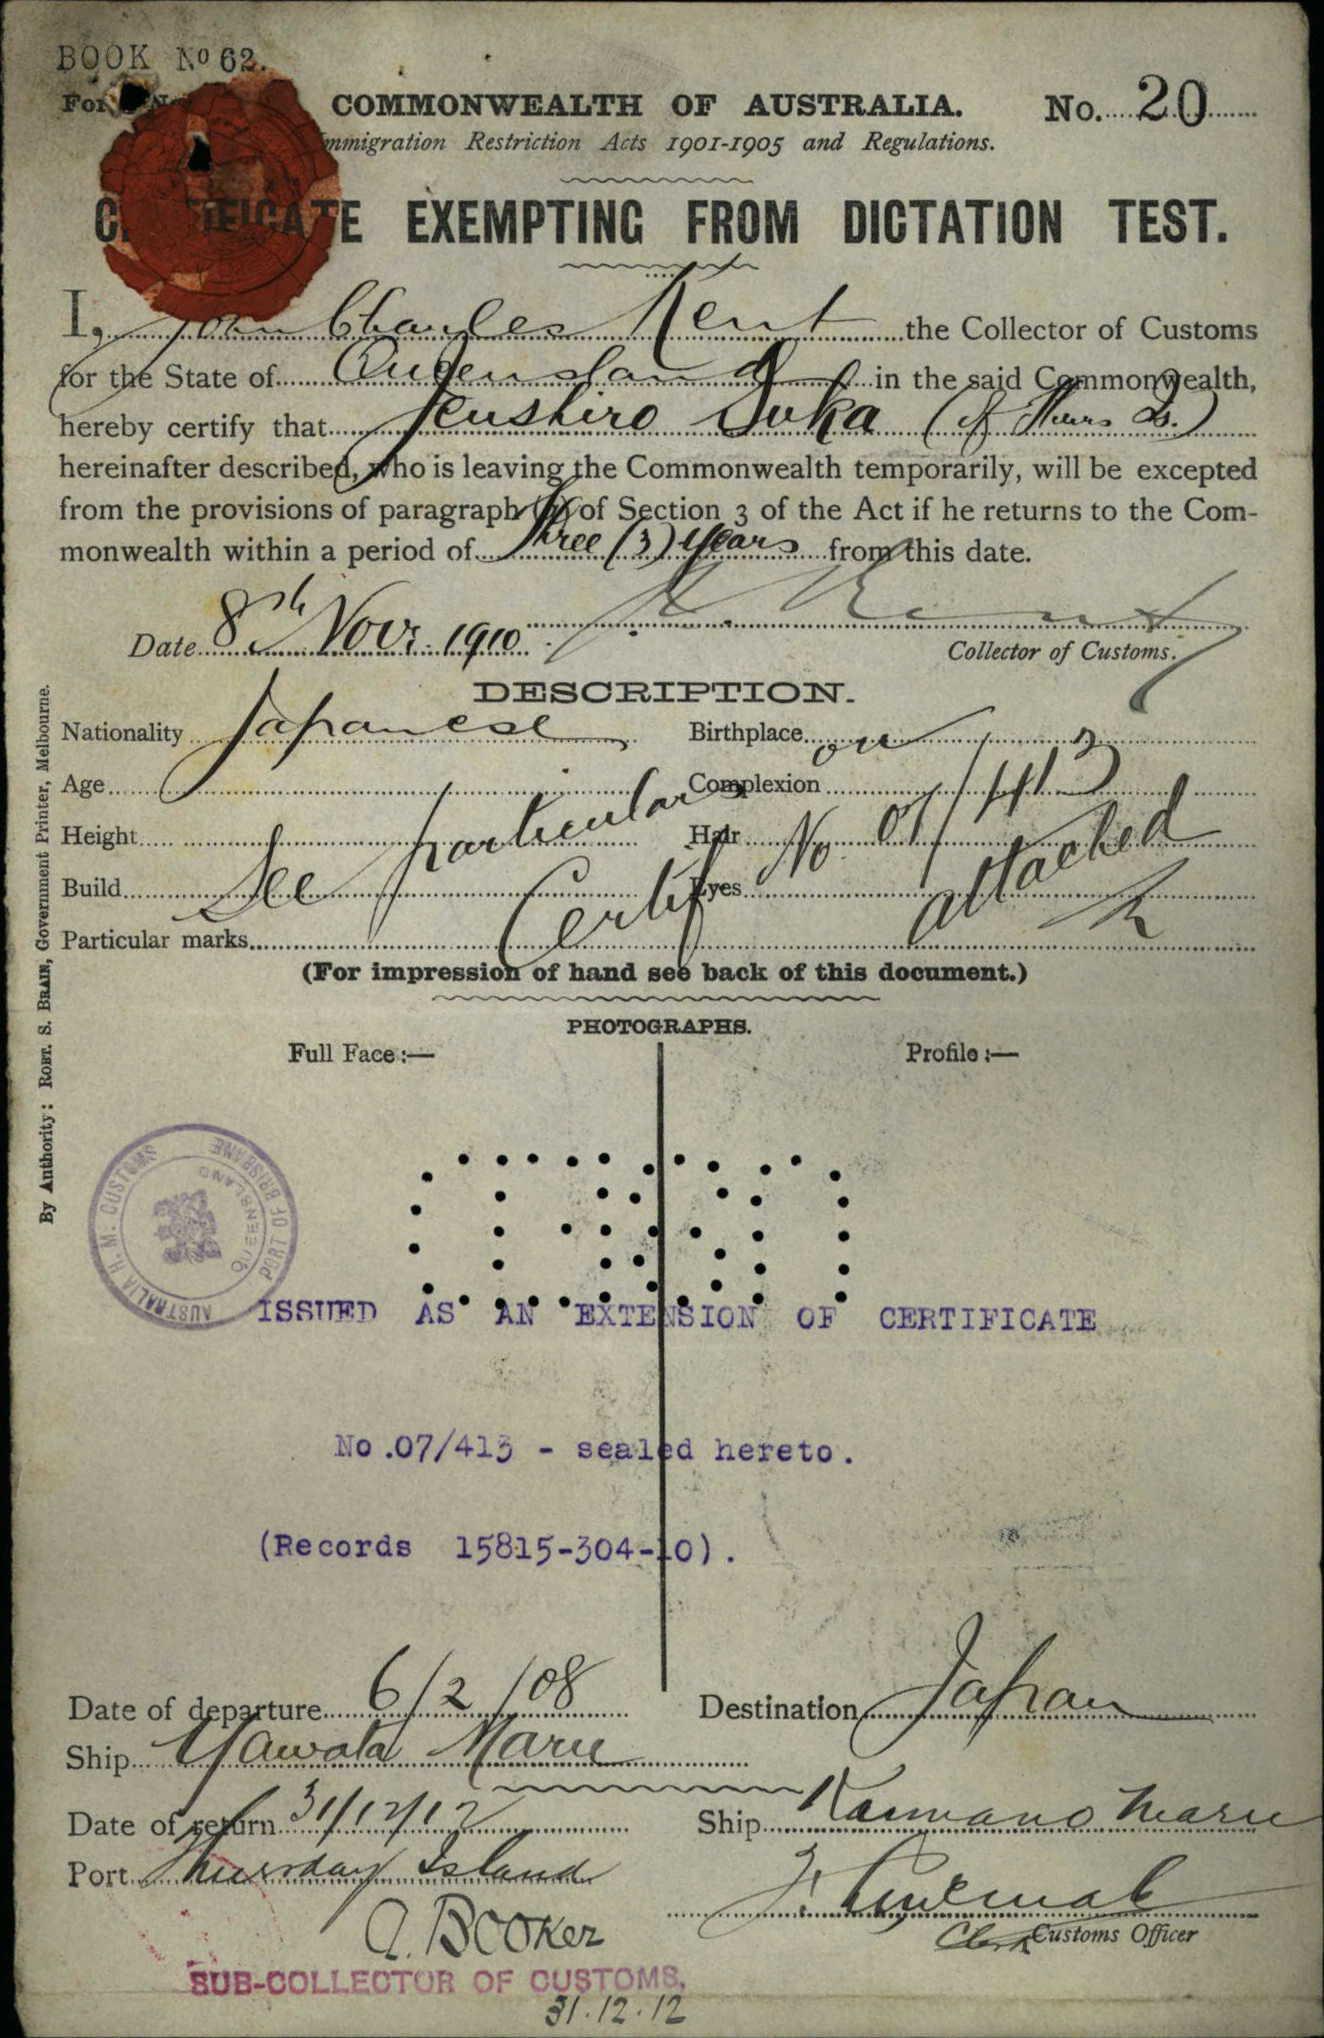 BOOK No 62.
For No
COMMONWEALTH OF AUSTRALIA. No. 20
Immigration Restriction Acts 1901-1905 and Regulations.
CERTIFICATE EXEMPTING FROM DICTATION TEST.
I, John Charles Kent the Collector of Customs
for the State of Queensland in the said Commonwealth,
hereby certify that Jenshiro Suka (of Thurs Is.)
hereinafter described, who is leaving the Commonwealth temporarily, will be excepted
from the provisions of paragraph (a) of Section 3 of the Act if he returns to the Com-
monwealth within a period of Three (3) years from this date.
Date 8th Novr. 1910
Collector of Customs.
DESCRIPTION.
Nationality Japanese Birthplace
Age Complexion
Height Hair
Build Eyes
Particular marks
See particulars on
Certif No 07/413 attached
(For impression of hand see back of this document.)
PHOTOGRAPHS.
Full Face:— Profile:—
AUSTRALIA H.M. CUSTOMS PORT OF BRISBANE
QUEENSLAND
ISSUED AS AN EXTENSION OF CERTIFICATE
No.07/413 - sealed hereto.
(Records 15815-304-10).
Date of departure 6/2/08 Destination Japan
Ship Yawata Maru
Date of return 31/12/12 Ship Kamano Maru
Port Thursday Island
A. Booker
Clerk Customs Officer
SUB-COLLECTOR OF CUSTOMS.
31.12.12
By Authority: ROBT. S. BRAIN, Government Printer, Melbourne.